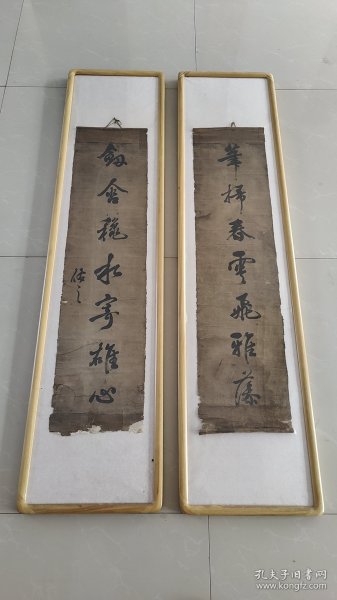 筆掃春雲飛雅藻
劔含秋水寄雄心
孔夫子旧书网
www.kongfz.com